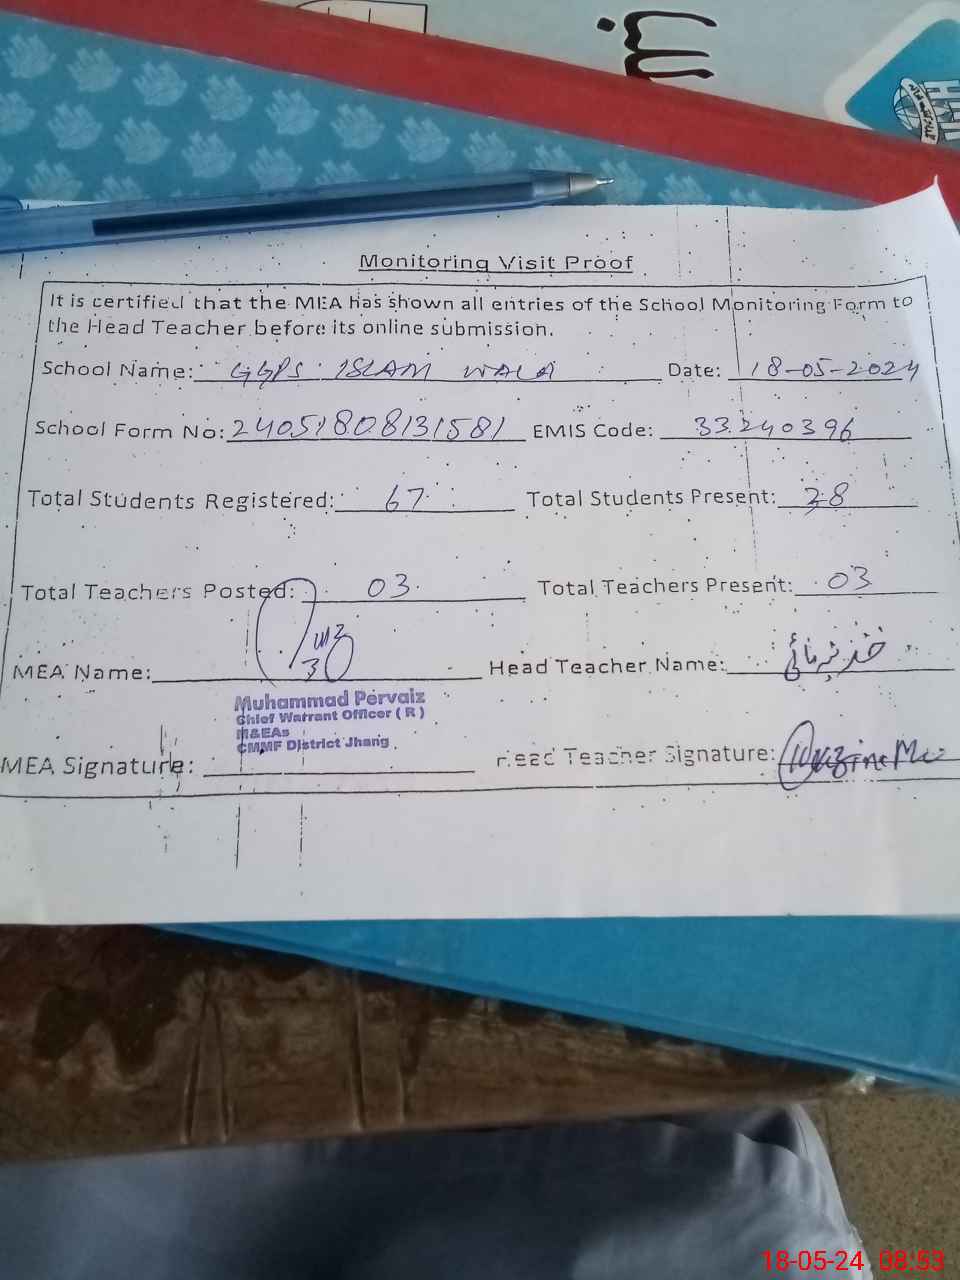 Monitoring Visit Proof
It is certified that the MEA has shown all entries of the School Monitoring Form to
the Head Teacher before its online submission.
School Name: GGPS ISLAM WALA Date: 18-05-2024
School Form No: 24051808131581 EMIS Code: 33240396
Total Students Registered: 67 Total Students Present: 28
Total Teachers Posted: 03 Total Teachers Present: 03
MEA Name: Head Teacher Name:
Muhammad Pervaiz
Chief Warrant Officer ( R )
M&EAs
CMMF District Jhang
MEA Signature: Head Teacher Signature:
18-05-24 08:53